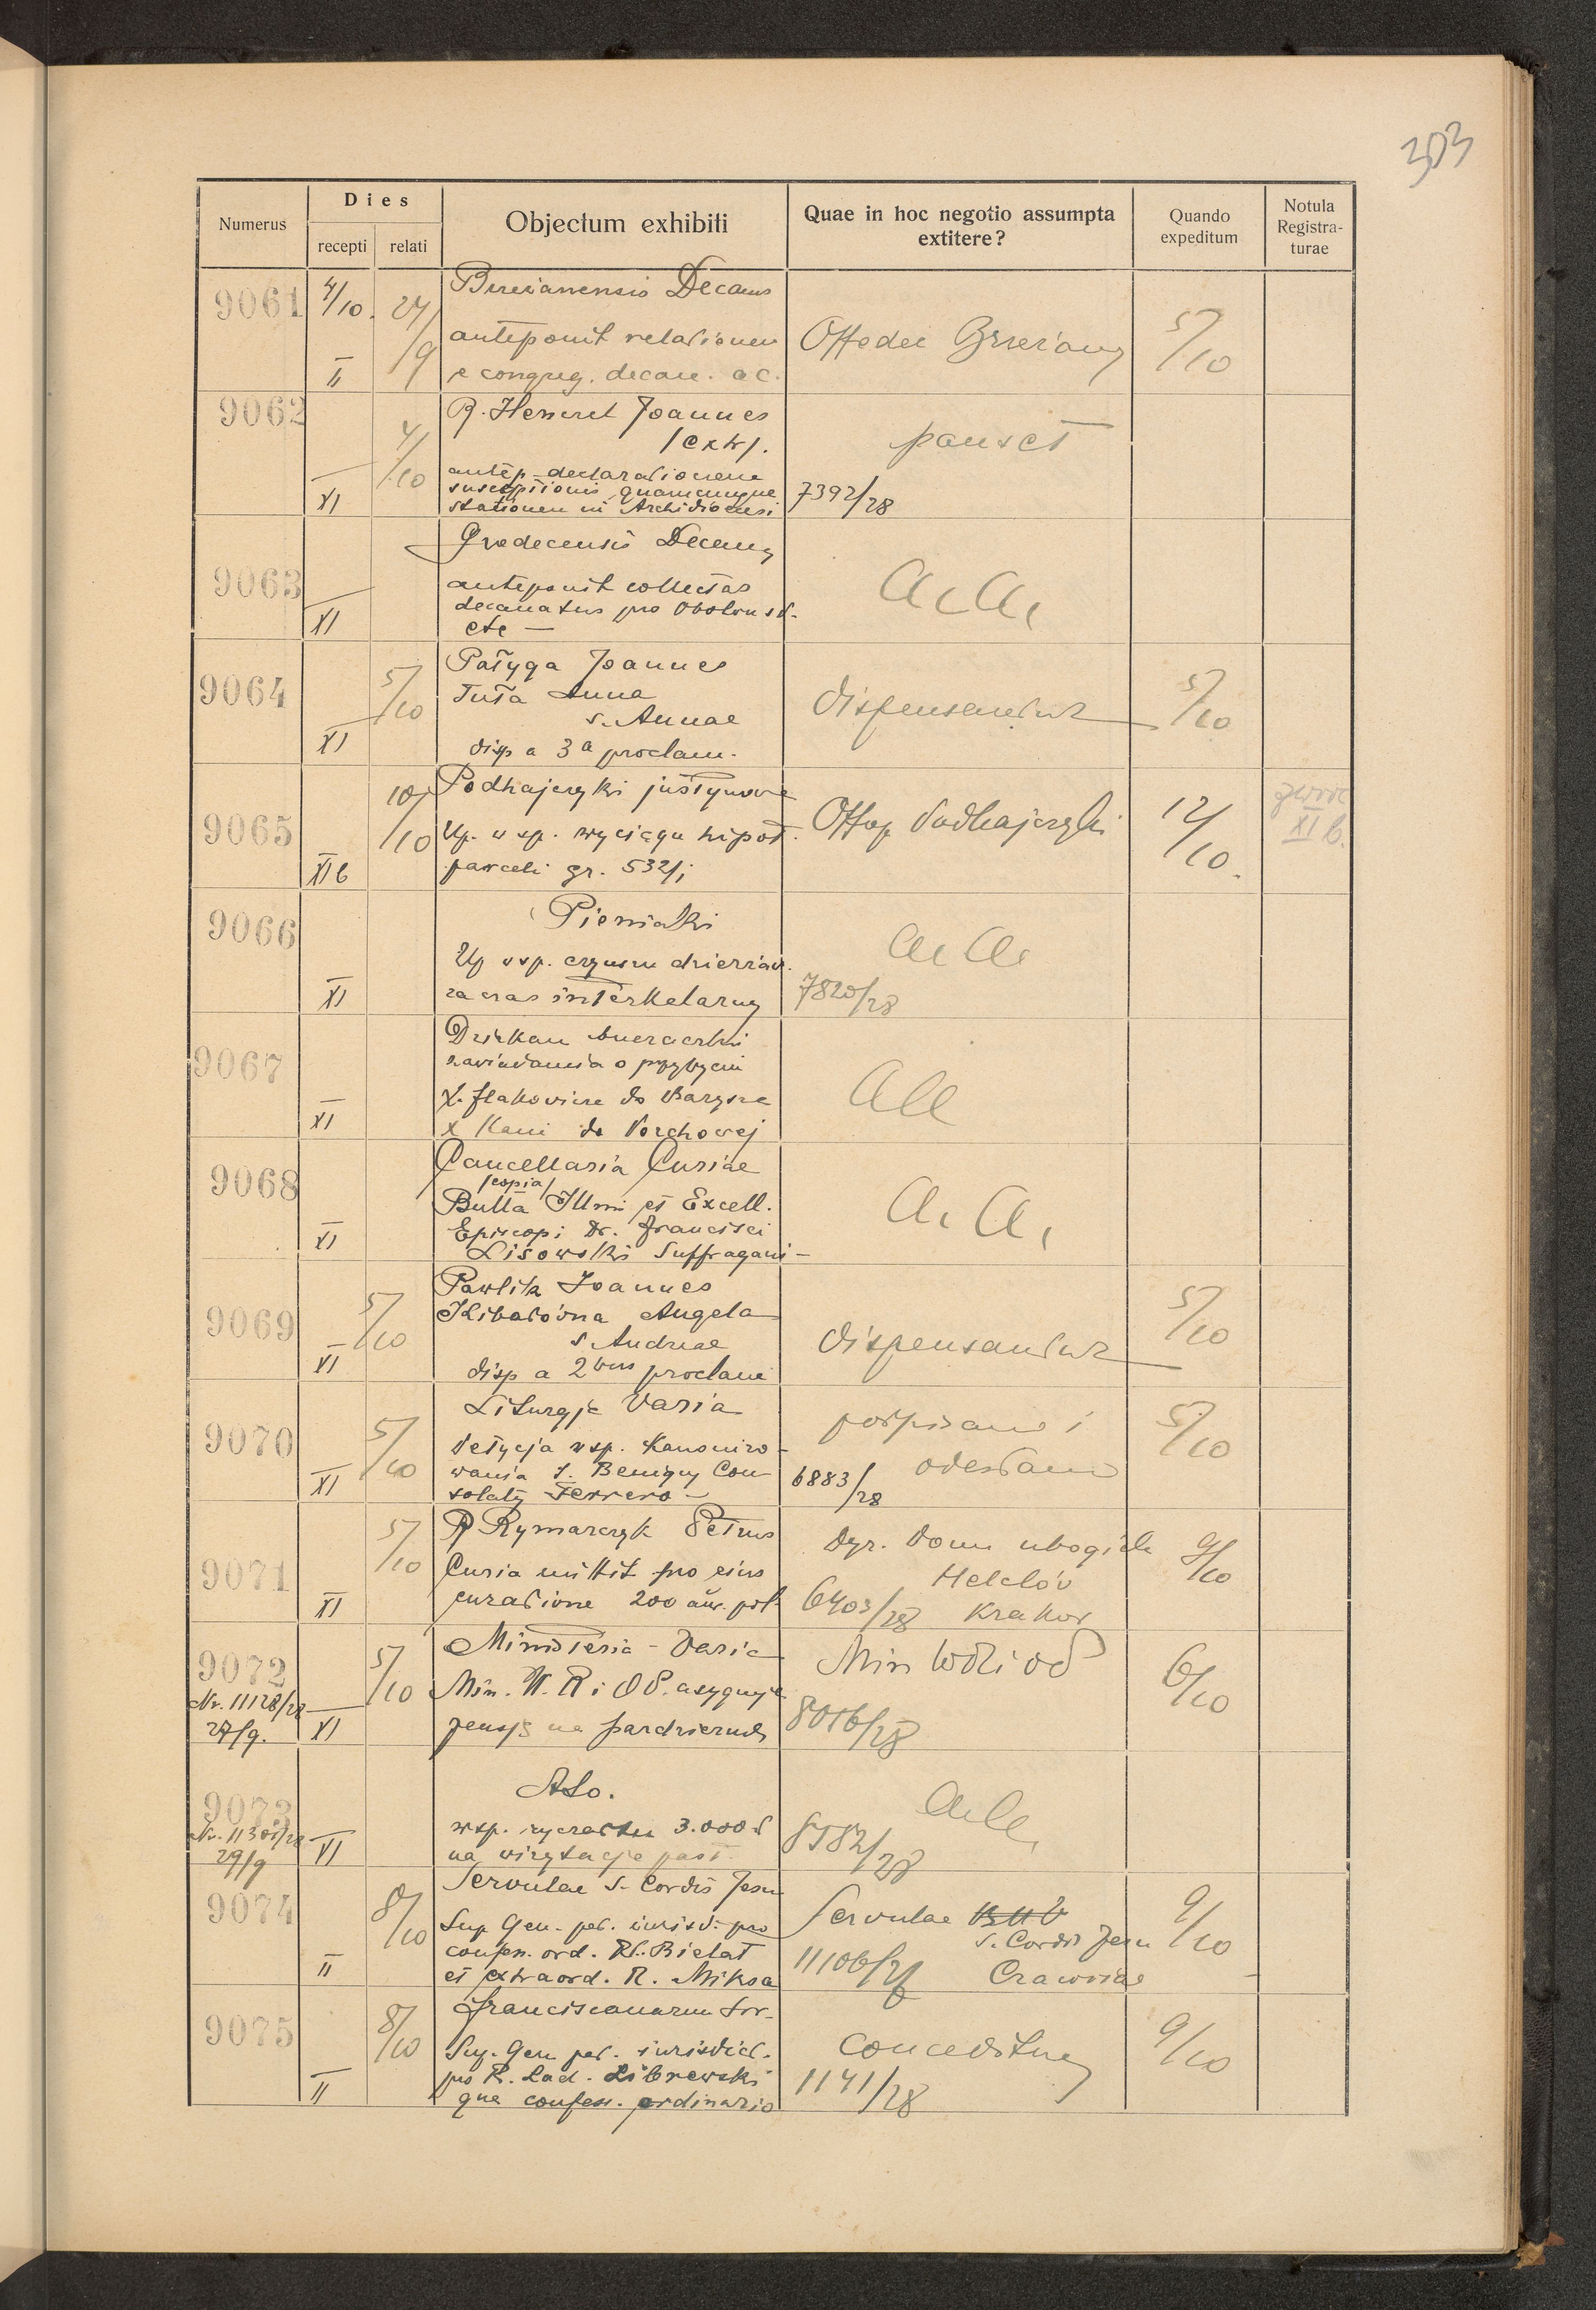 303
Numerus
Dies
recepti
relati
Objectum exhibiti
Quae in hoc negotio assumpta
extitere?
Quando
expeditum
Notula
Registra-
turae
9061
4/10.
II
24/9
Decanus
anteponit relationem
e congreg. decan. a c.
5/10
9062
XI
4/10
R. Joannes
/extr/.
antep. declarationem
susceptionis quamcunque
stationem in Archidiocesi
7392/28
9063
XI
Grodecensis Decanus
anteponit collectas
decanatus pro
etc —
a. a.
9064
XI
5/10
Patyga Joannes
Tuta Anna
s. Annae
disp a 3a proclam.
dispensantur
5/10
9065
XIb
10/10
Podhajczyki
Up. w sp. wyciągu hipot.
parceli gr. 532/1
Podhajczyki
12/10.
XI b.
9066
XI
Pieniaki
Up w sp. czynszu dzierżaw.
za czas interkalarny
a. a.
7820/28
9067
XI
Dziekan
zawiadamia o przybyciu
do Barysza
x Kani do
aa
9068
XI
Cancellaria Curiae
/copia/
Bulla Illmi et Excell.
Episcopi Dr. Francisci
Lisowski Suffragani —
a. a.
9069
XI
5/10
Pawlik Joannes
Angela
s Andreae
disp a 2bus proclam
dispensantur
5/10
9070
XI
5/10
Liturgja Varia
Petycja wsp. kanonizo-
wania S. Benigny Con-
solaty Ferrero —
podpisano i
odesłano
6883/28
5/10
9071
XI
5/10
R Rymarczyk Petrus
Curia mittit pro eius
curatione 200 aur. pol.
Dyr. Domu ubogich
Helclów
6403/28 Krakow
9/10
9072
Nr. 11128/28
27/9.
XI
5/10
Ministeria - Varia
Min. W. R i O P. asygnuje
pensję na październik
Min WRi OP
8056/28
6/10
9073
29/9
VI
Ato.
wsp. ryczałtu 3.000 zł
na wizytacje past.
aa.
8582/28
9074
II
8/10
Servulae S. Cordis Jesu
Sup Gen. pet. iurisd. pro
confess. ord. R. Bielat
et extraord. R. Miksa
Servulae
S. Cordis Jesu
Cracoviae
9/10
9075
II
8/10
Franciscanarum Sor.
Sup. Gen pet. iurisdict.
pro R. Lad. Librewski
qua confess. ordinario
conceditur
1141/28
9/10